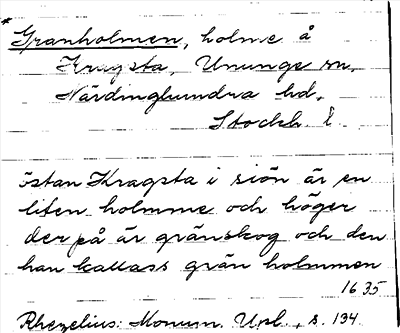 * Granholmen, holme å
Kragsta, Ununge sn,
Närdinghundra hd,
Stockh. l.
östan Kragsta i siön är en
liten holmme och höger
der på är gränskog och den
han kallass grän holmmen
1635
Rhezelius: Monum. Upl., s. 134